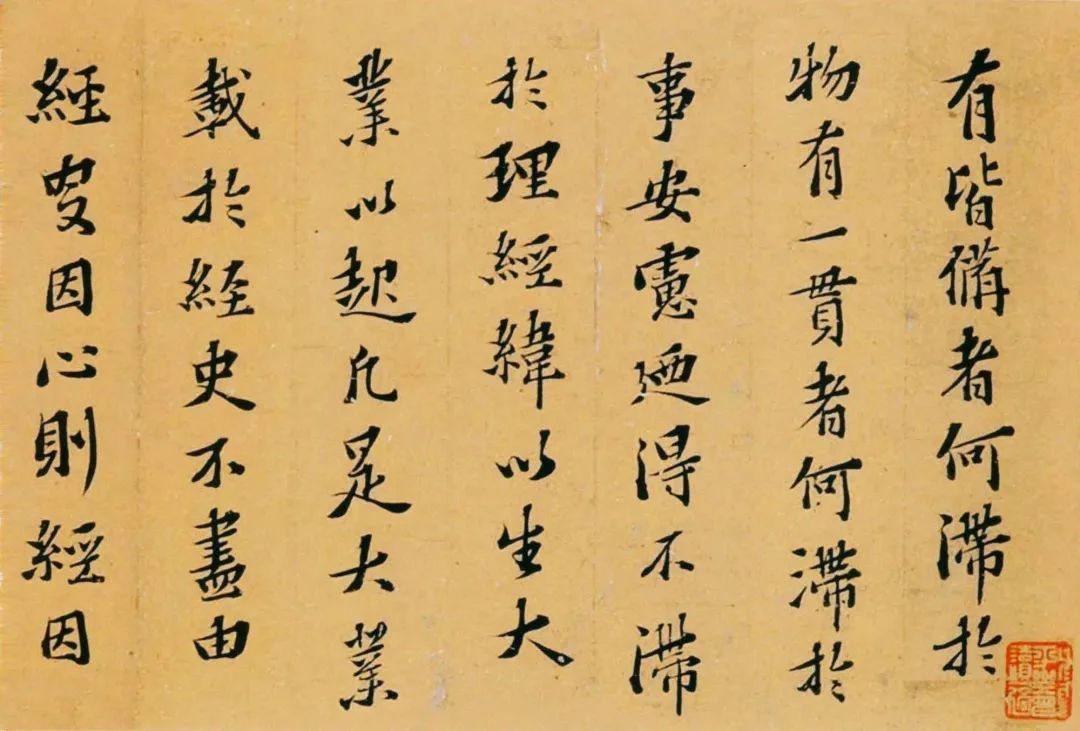 有皆備者何滯於
物有一貫者何滯於
事安慮廼得不滯
於理經緯以生大
業以起凡是大業
載於經史不盡由
經史因心則經因